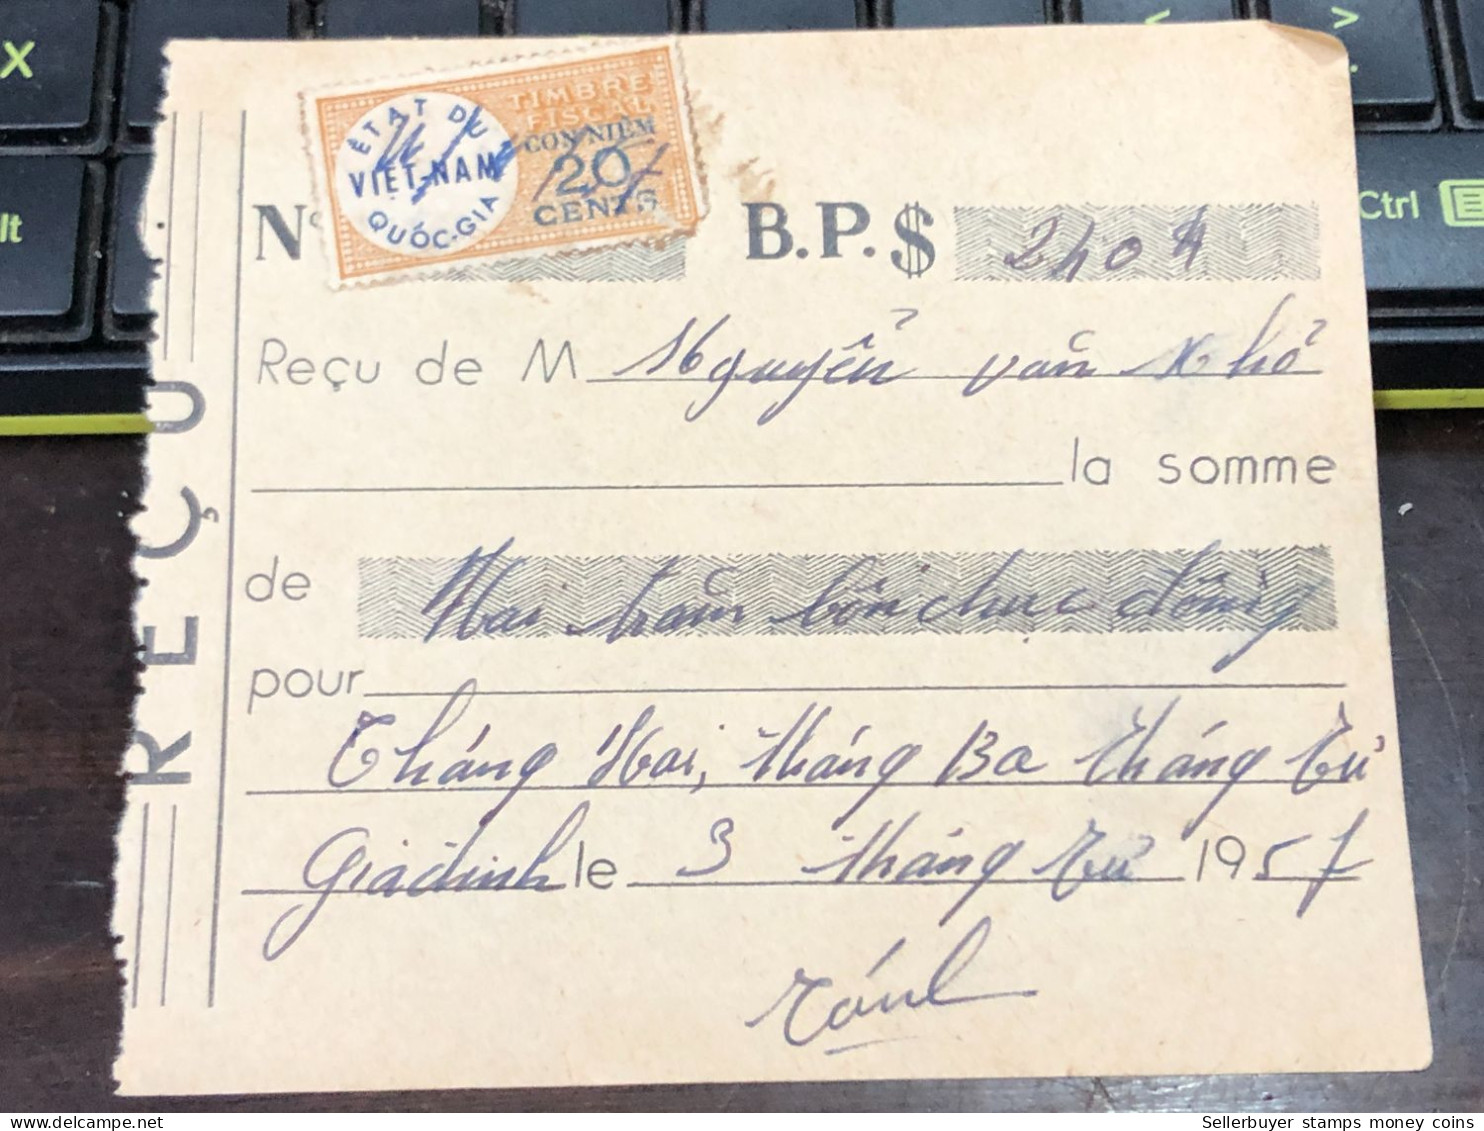 ÉTAT DU
VIỆT-NAM
QUỐC-GIA
TIMBRE
FISCAL
CON NIÊM
20
CENTS
REÇU
N°
B.P.$ 240$
Reçu de M Nguyễn văn Nhỏ
la somme
de Hai trăm bốn chục đồng
pour
Tháng Hai, tháng Ba tháng tư
Giadinh le 3 tháng tư 1957
X
lt
<
>
Ctrl
Sellerbuyer stamps money coins